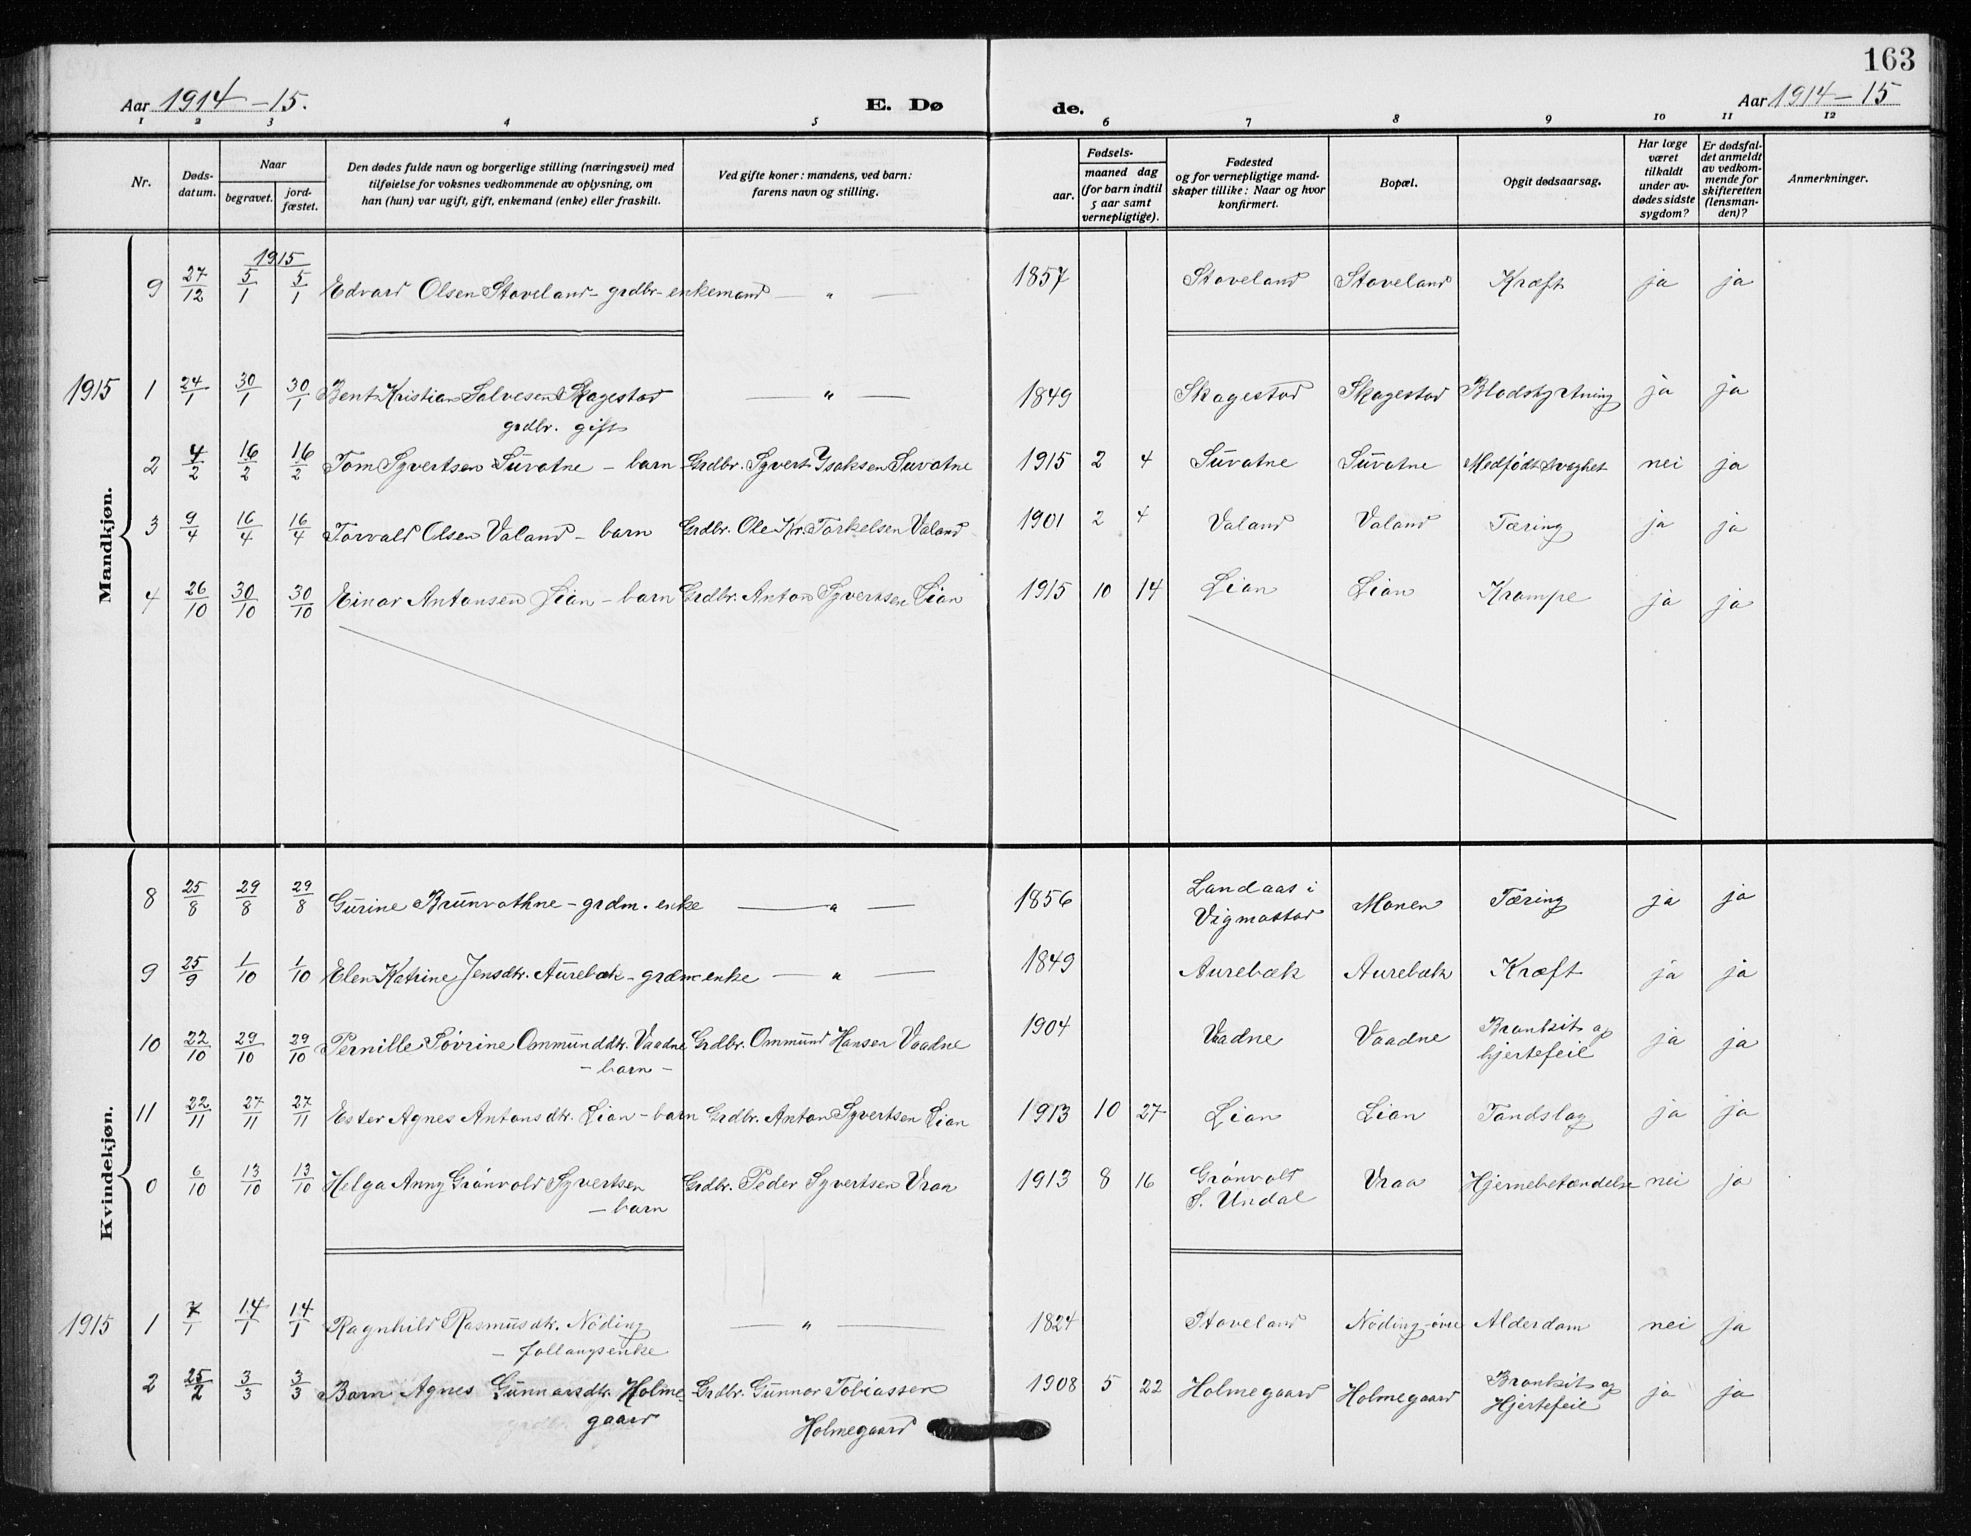 163
Aar 1914-15. E. Dø de. Aar 1914-15
1 2 3 4 5 6 7 8 9 10 11 12
Nr. Døds-datum. Naar begravet. jord-fæstet. Den dødes fulde navn og borgerlige stilling (næringsvei) med tilføielse for voksnes vedkommende av oplysning, om han (hun) var ugift, gift, enkemand (enke) eller fraskilt. Ved gifte koner: mandens, ved barn: farens navn og stilling. Fødsels- aar. maaned dag (for barn indtil 5 aar samt vernepligtige). Fødested og for vernepligtige mand-skaper tillike: Naar og hvor konfirmert. Bopæl. Opgit dødsaarsag. Har læge været tilkaldt under av-dødes sidste sygdom? Er dødsfal-det anmeldt av vedkom-mende for skifteretten (lensman-den)? Anmerkninger.
Mandkjøn.
1915
9 27/12 5/1 5/1 Edvard Olsen Stoveland - grdbr - enkemand — " — 1857 Stoveland Stoveland Kræft ja ja
1915 1 24/1 30/1 30/1 Bent Kristian Salvesen Skagestad — " — 1849 Skagestad Skagestad Blodstyrtning ja ja
grdbr. gift
2 4/2 16/2 16/2 Tom Syvertsen Suvatne - barn Grdbr. Syvert Ysaksen Suvatne 1915 2 4 Suvatne Suvatne Medfødt svaghet nei ja
3 9/4 16/4 16/4 Torvald Olsen Valand - barn Grdbr. Ole Kr. Torkelsen Valand 1901 2 4 Valand Valand Tæring ja ja
4 26/10 30/10 30/10 Einar Antonsen Lian - barn Grdbr. Anton Syvertsen Lian 1915 10 14 Lian Lian Krampe ja ja
Kvindekjøn.
8 25/8 29/8 29/8 Gurine Brunvathne - grdm. enke — " — 1856 Landaas i Vigmostad Monen Tæring ja ja
9 25/9 1/10 1/10 Elen Katrine Jensdtr. Aurebæk - grdm enke — " — 1849 Aurebæk Aurebæk Kræft ja ja
10 22/10 29/10 29/10 Pernille Søvrine Ommunddtr. Vaadne Grdbr. Ommund Hansen Vaadne 1904 Vaadne Vaadne Bronkit og hjertefeil ja ja
- barn -
11 22/11 27/11 27/11 Ester Agnes Antonsdtr. Lian - barn Grdbr. Anton Syvertsen Lian 1913 10 27 Lian Lian Tandslag ja ja
0 6/10 13/10 13/10 Helga Anny Grönvold Syvertsen Grdbr. Peder Syvertsen Vraa 1913 8 16 Grönvold S. Undal Vraa Hjernebetændelse nei ja
- barn
1915 1 7/1 14/1 14/1 Ragnhild Rasmusdtr. Nöding — " — 1824 Stoveland Nöding øvre Alderdom nei ja
- follaugsenke
2 25/2 3/3 3/3 Barn Agnes Gunnarsdtr. Holme- Grdbr. Gunnar Tobiassen 1908 5 22 Holmegaard Holmegaard Bronkit og Hjertefeil ja ja
gaard Holmegaard